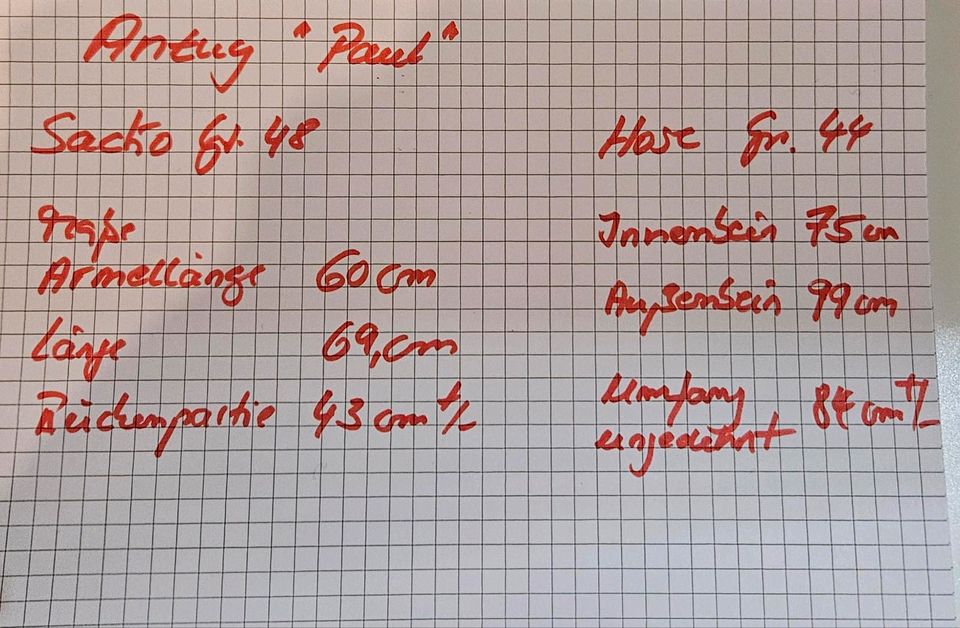 Anzug "Paul"
Sacko Gr. 48
Maße
Armellänge 60 cm
Länge 69, cm
Rückenpartie 43 cm +/-
Hose Gr. 44
Innenbein 75 cm
Außenbein 99 cm
Umfang 84 cm +/-
ungedehnt